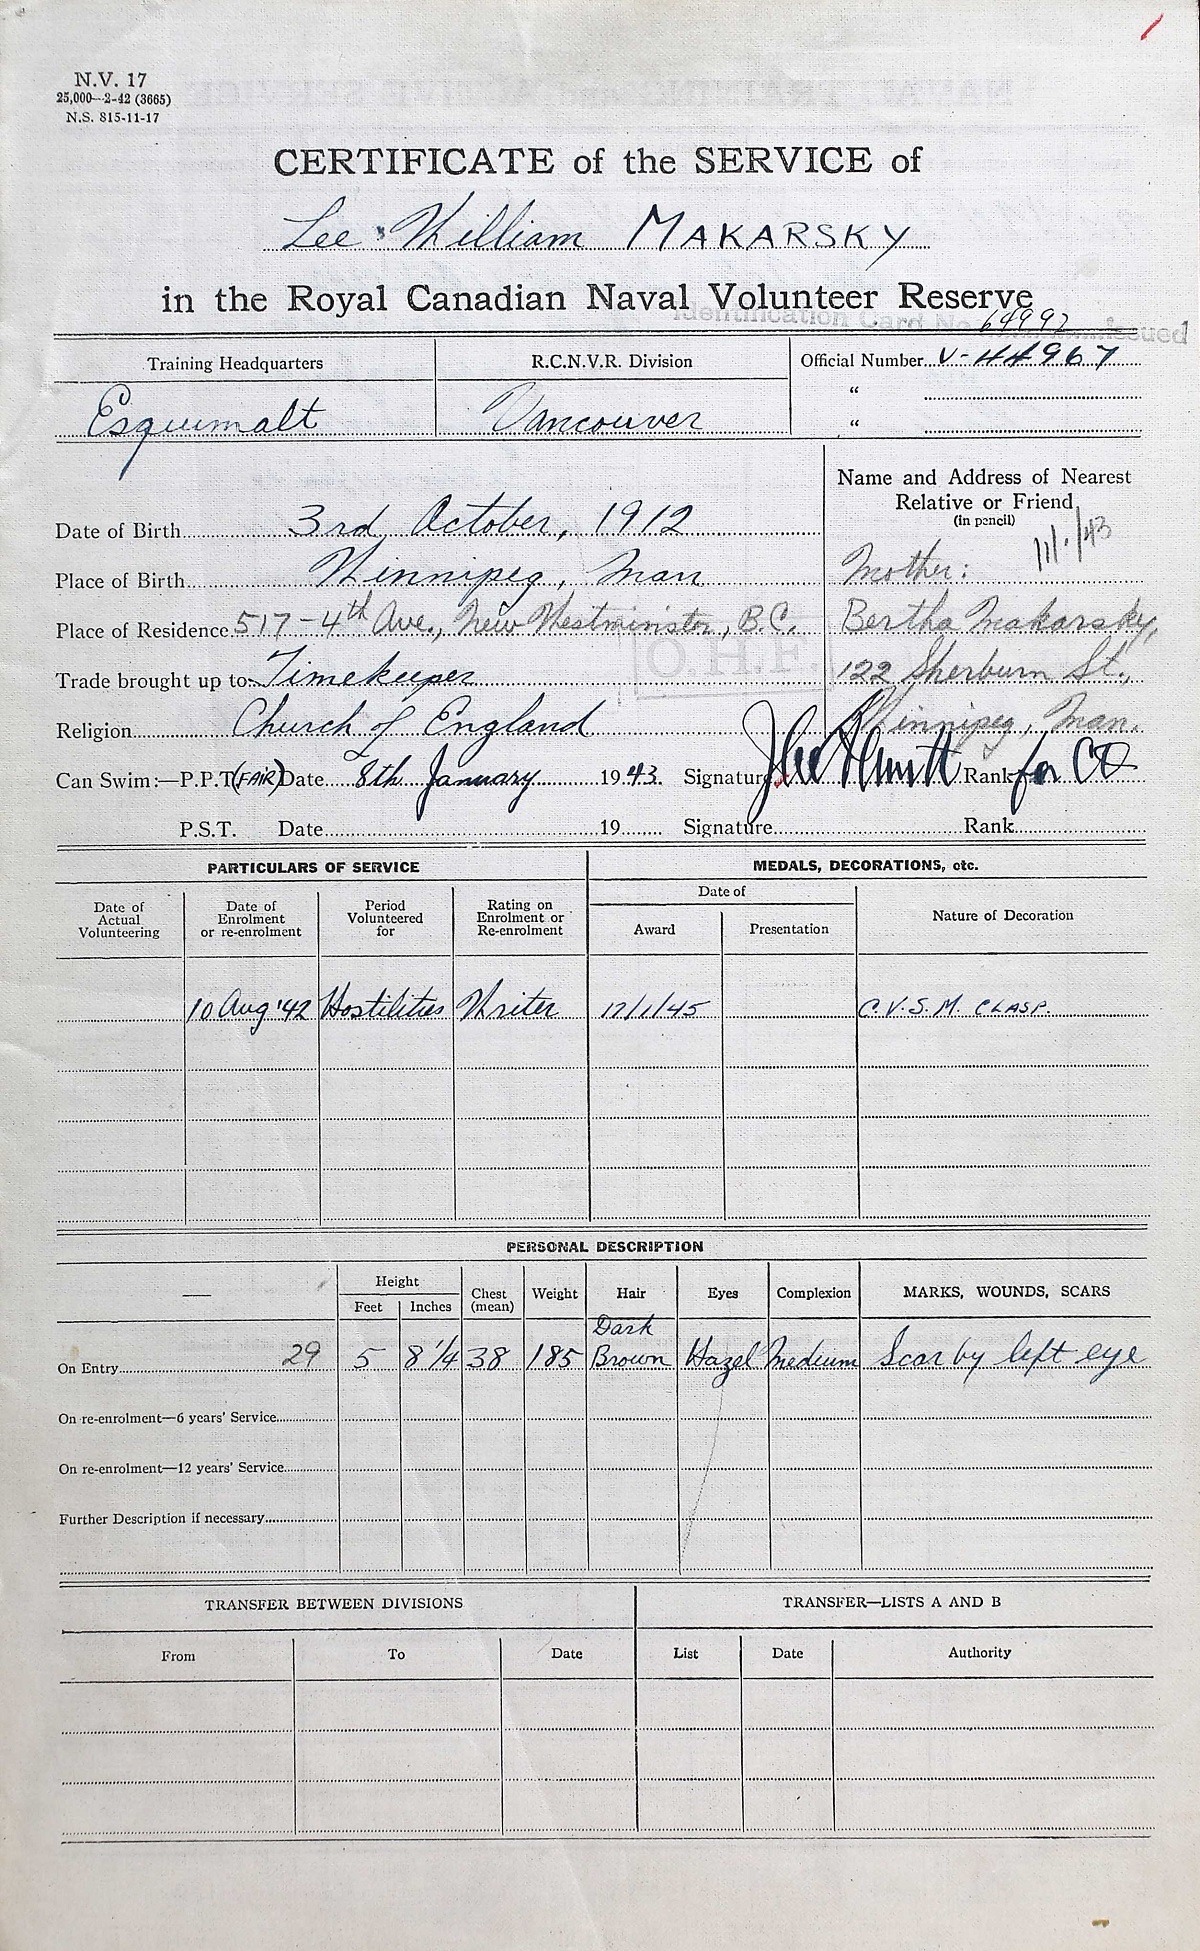 N.V. 17
25,000—2-42 (3665)
N.S. 815-11-17
CERTIFICATE of the SERVICE of
Lee William MAKARSKY
in the Royal Canadian Naval Volunteer Reserve
Identification Card No. 64992 issued
Training Headquarters R.C.N.V.R. Division Official Number V-44967
“
Esquimalt Vancouver
“
Name and Address of Nearest
Relative or Friend
(in pencil)
Date of Birth 3rd October, 1912
Mother:
Place of Birth Winnipeg, Man
Place of Residence 517-4th Ave., New Westminster, B.C. Bertha Makarsky,
O.H.F.
Trade brought up to Timekeeper 122 Sherburn St.,
Religion Church of England Winnipeg, Man.
Can Swim:—P.P.T. (FAIR) Date 8th January 1943. Signature Rank for CO
P.S.T. Date 19 Signature Rank
PARTICULARS OF SERVICE MEDALS, DECORATIONS, etc.
Date of Actual Volunteering Date of Enrolment or re-enrolment Period Volunteered for Rating on Enrolment or Re-enrolment Date of Award Presentation Nature of Decoration
10 Aug '42 Hostilities Writer 12/1/45 C.V.S.M. CLASP.
PERSONAL DESCRIPTION
— Height Feet Inches Chest (mean) Weight Hair Eyes Complexion MARKS, WOUNDS, SCARS
On Entry 29 5 8 1/4 38 185 Dark Brown Hazel Medium Scar by left eye
On re-enrolment—6 years' Service
On re-enrolment—12 years' Service
Further Description if necessary
TRANSFER BETWEEN DIVISIONS TRANSFER—LISTS A AND B
From To Date List Date Authority